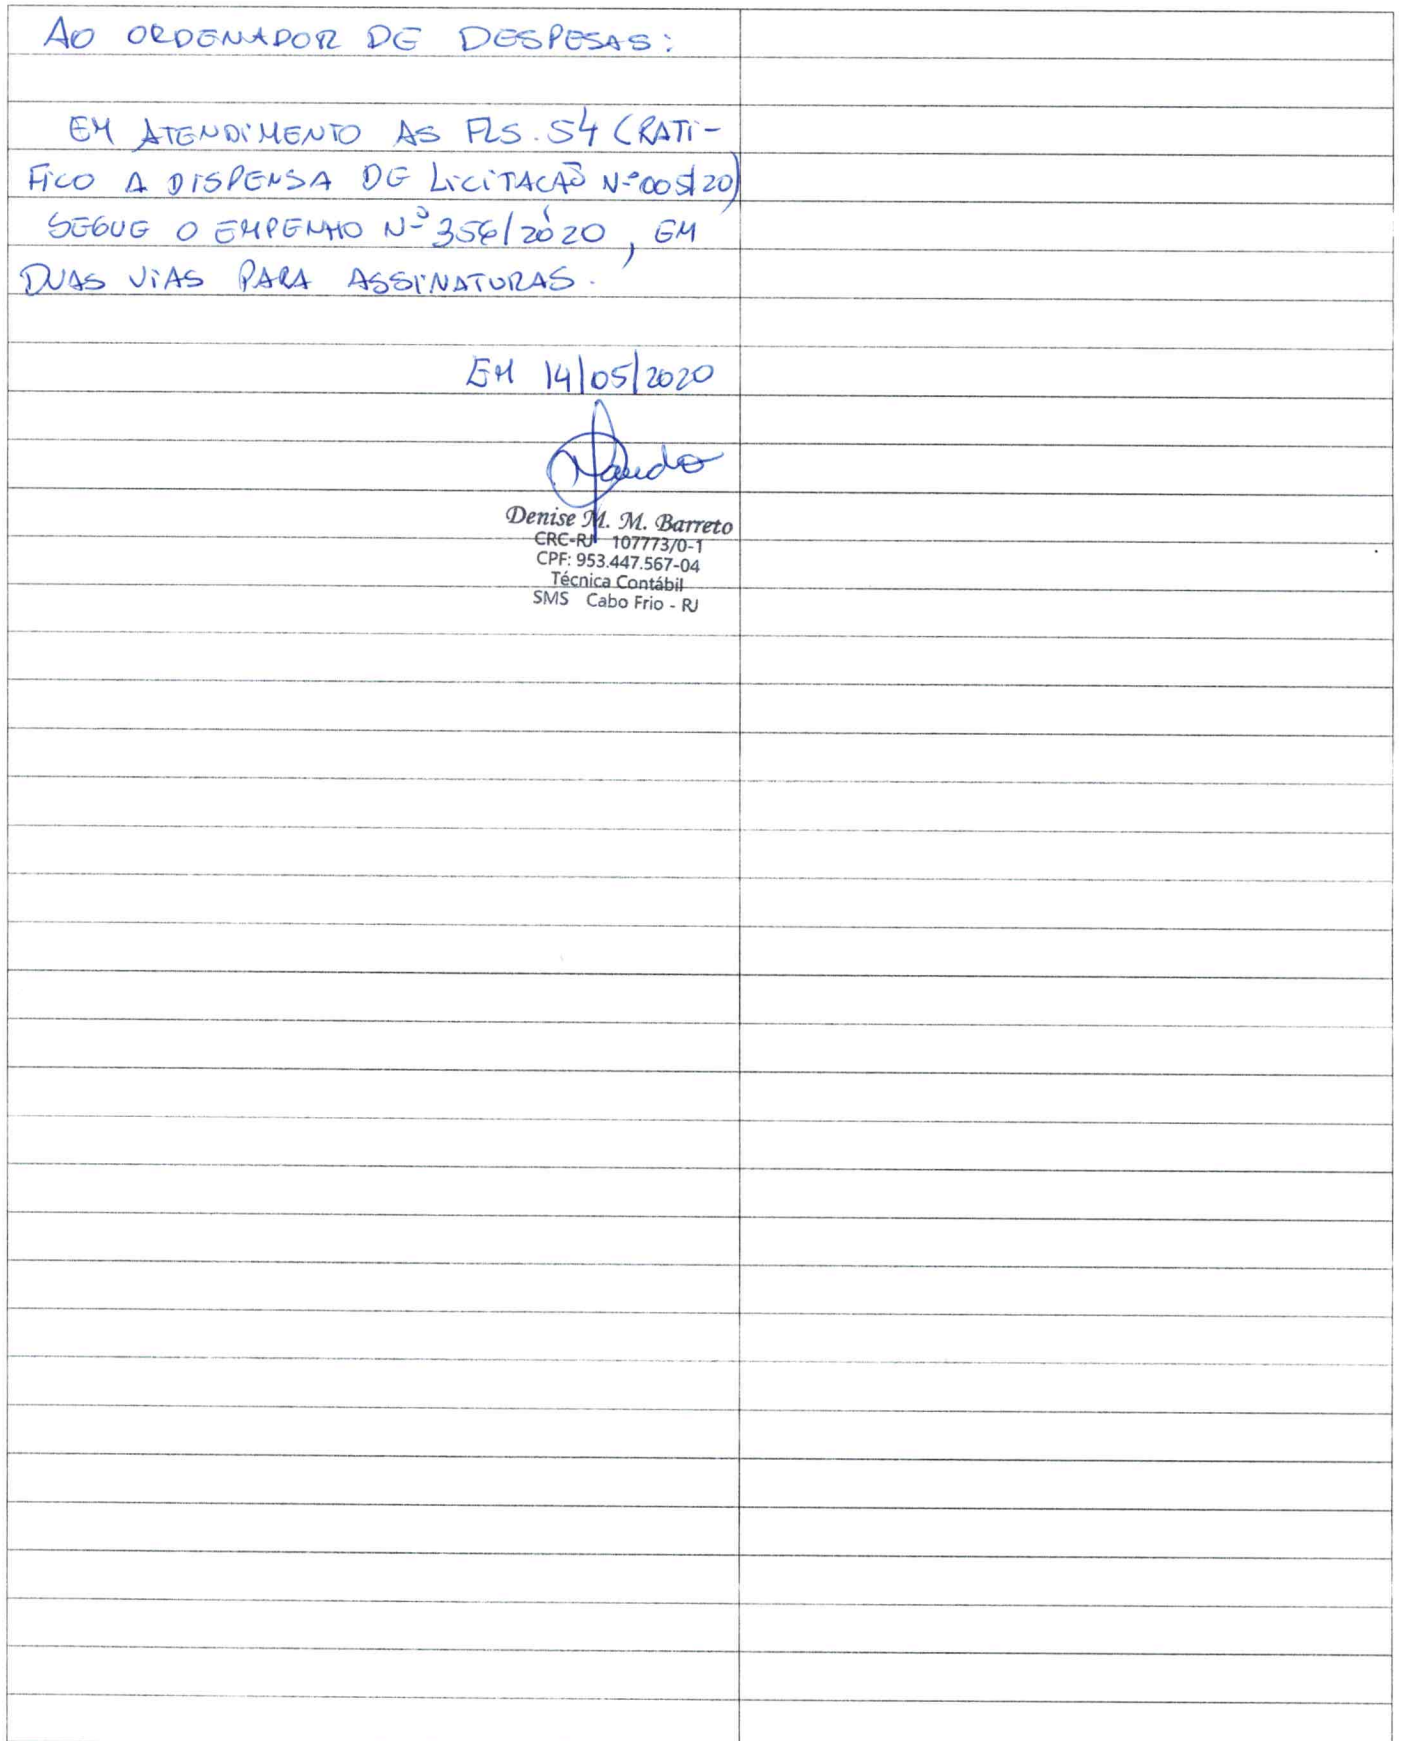 AO ORDENADOR DE DESPESAS:
EM ATENDIMENTO AS FLS. 54 (RATI-
FICO A DISPENSA DE LICITAÇÃO Nº 005/20)
SEGUE O EMPENHO Nº 356/2020, EM
DUAS VIAS PARA ASSINATURAS.
EM 14/05/2020
Denise M. M. Barreto
CRC-RJ 107773/0-1
CPF: 953.447.567-04
Técnica Contábil
SMS Cabo Frio - RJ